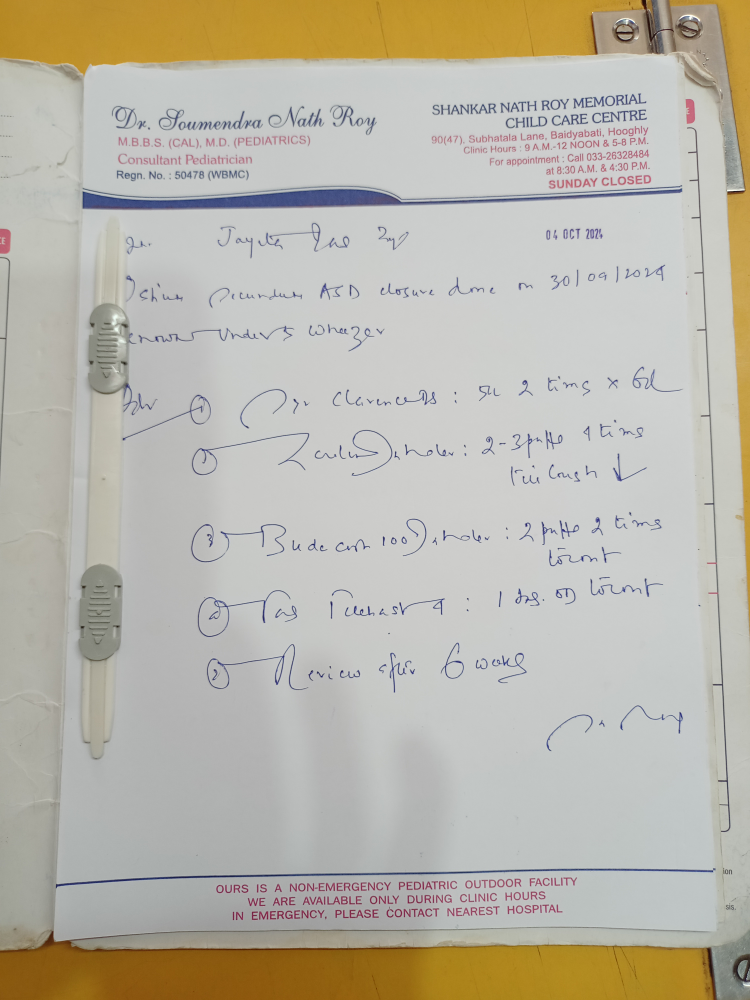 Dr. Soumendra Nath Roy
M.B.B.S. (CAL), M.D. (PEDIATRICS)
Consultant Pediatrician
Regn. No. : 50478 (WBMC)
SHANKAR NATH ROY MEMORIAL
CHILD CARE CENTRE
90(47), Subhatala Lane, Baidyabati, Hooghly
Clinic Hours : 9 A.M.-12 NOON & 5-8 P.M.
For appointment : Call 033-26328484
at 8:30 A.M. & 4:30 P.M.
SUNDAY CLOSED
04 OCT 2024
ASD closure done on 30/09/2024
under 5 wheezer
Adv
① Syr : 5ml 2 times x 6d
: 2-3 puffs 4 times
till cough ↓
③ Budecort 100 Inhaler : 2 puffs 2 times
to cont
④ Tab 4 : 1 to cont
Review after 6 weeks
OURS IS A NON-EMERGENCY PEDIATRIC OUTDOOR FACILITY
WE ARE AVAILABLE ONLY DURING CLINIC HOURS
IN EMERGENCY, PLEASE CONTACT NEAREST HOSPITAL